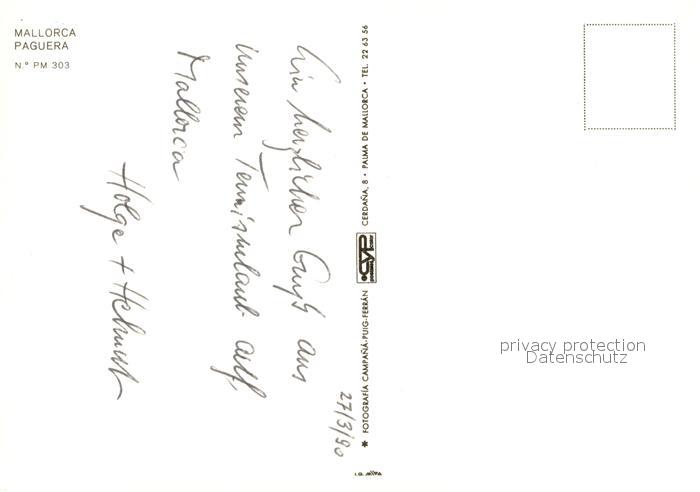 MALLORCA
PAGUERA
N.º PM 303
27/3/90
Ein herzlicher Gruß aus
unserem Tennisurlaub auf
Mallorca
Holge + Helmut
✷ FOTOGRAFÍA CAMPAÑÁ-PUIG-FERRÁN CYP CERDAÑA, 8 • PALMA DE MALLORCA • TEL. 22 63 56
privacy protection
Datenschutz